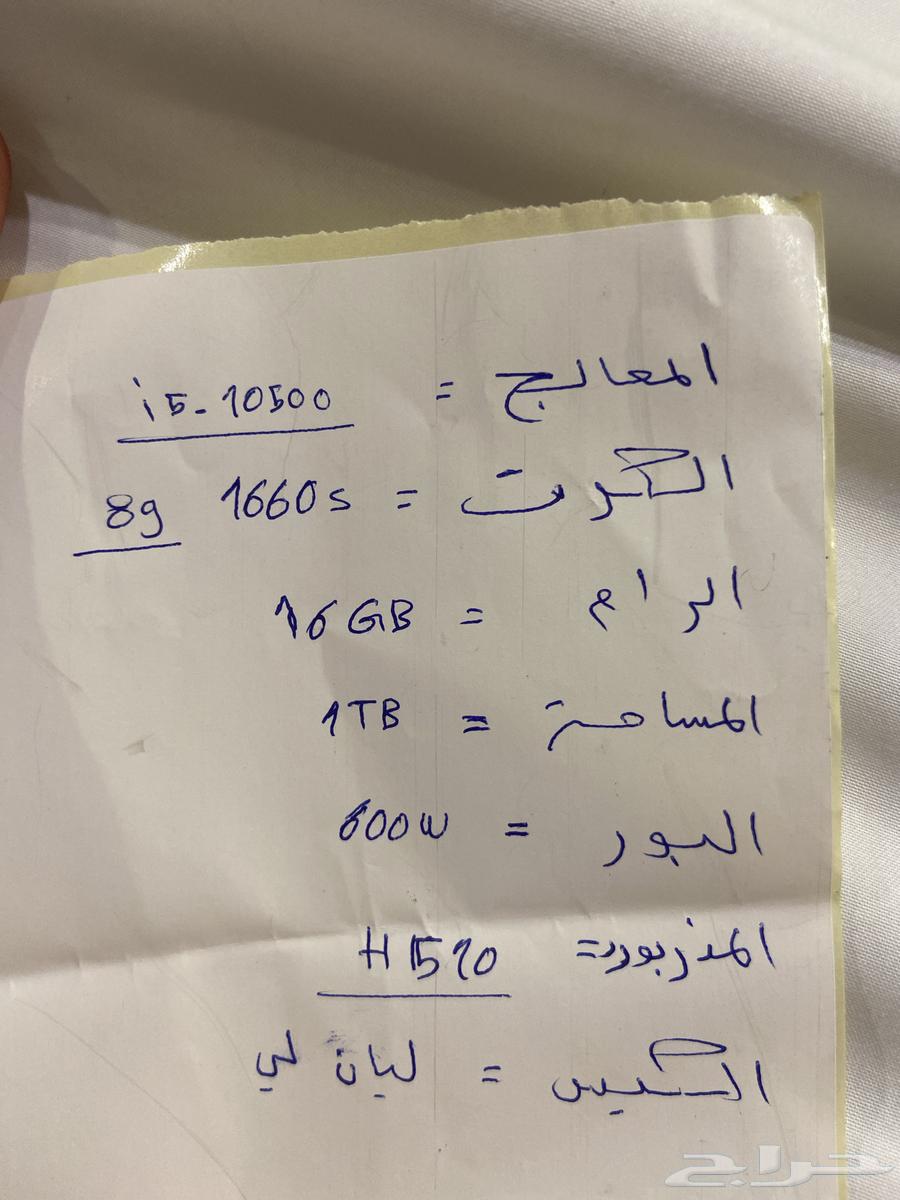 المعالج = i5-10500
الكرت = 1660s 8g
الرام = 16GB
المساحة = 1TB
البور = 600w
المذربورد = H510
الكيس = ليان لي
حراج